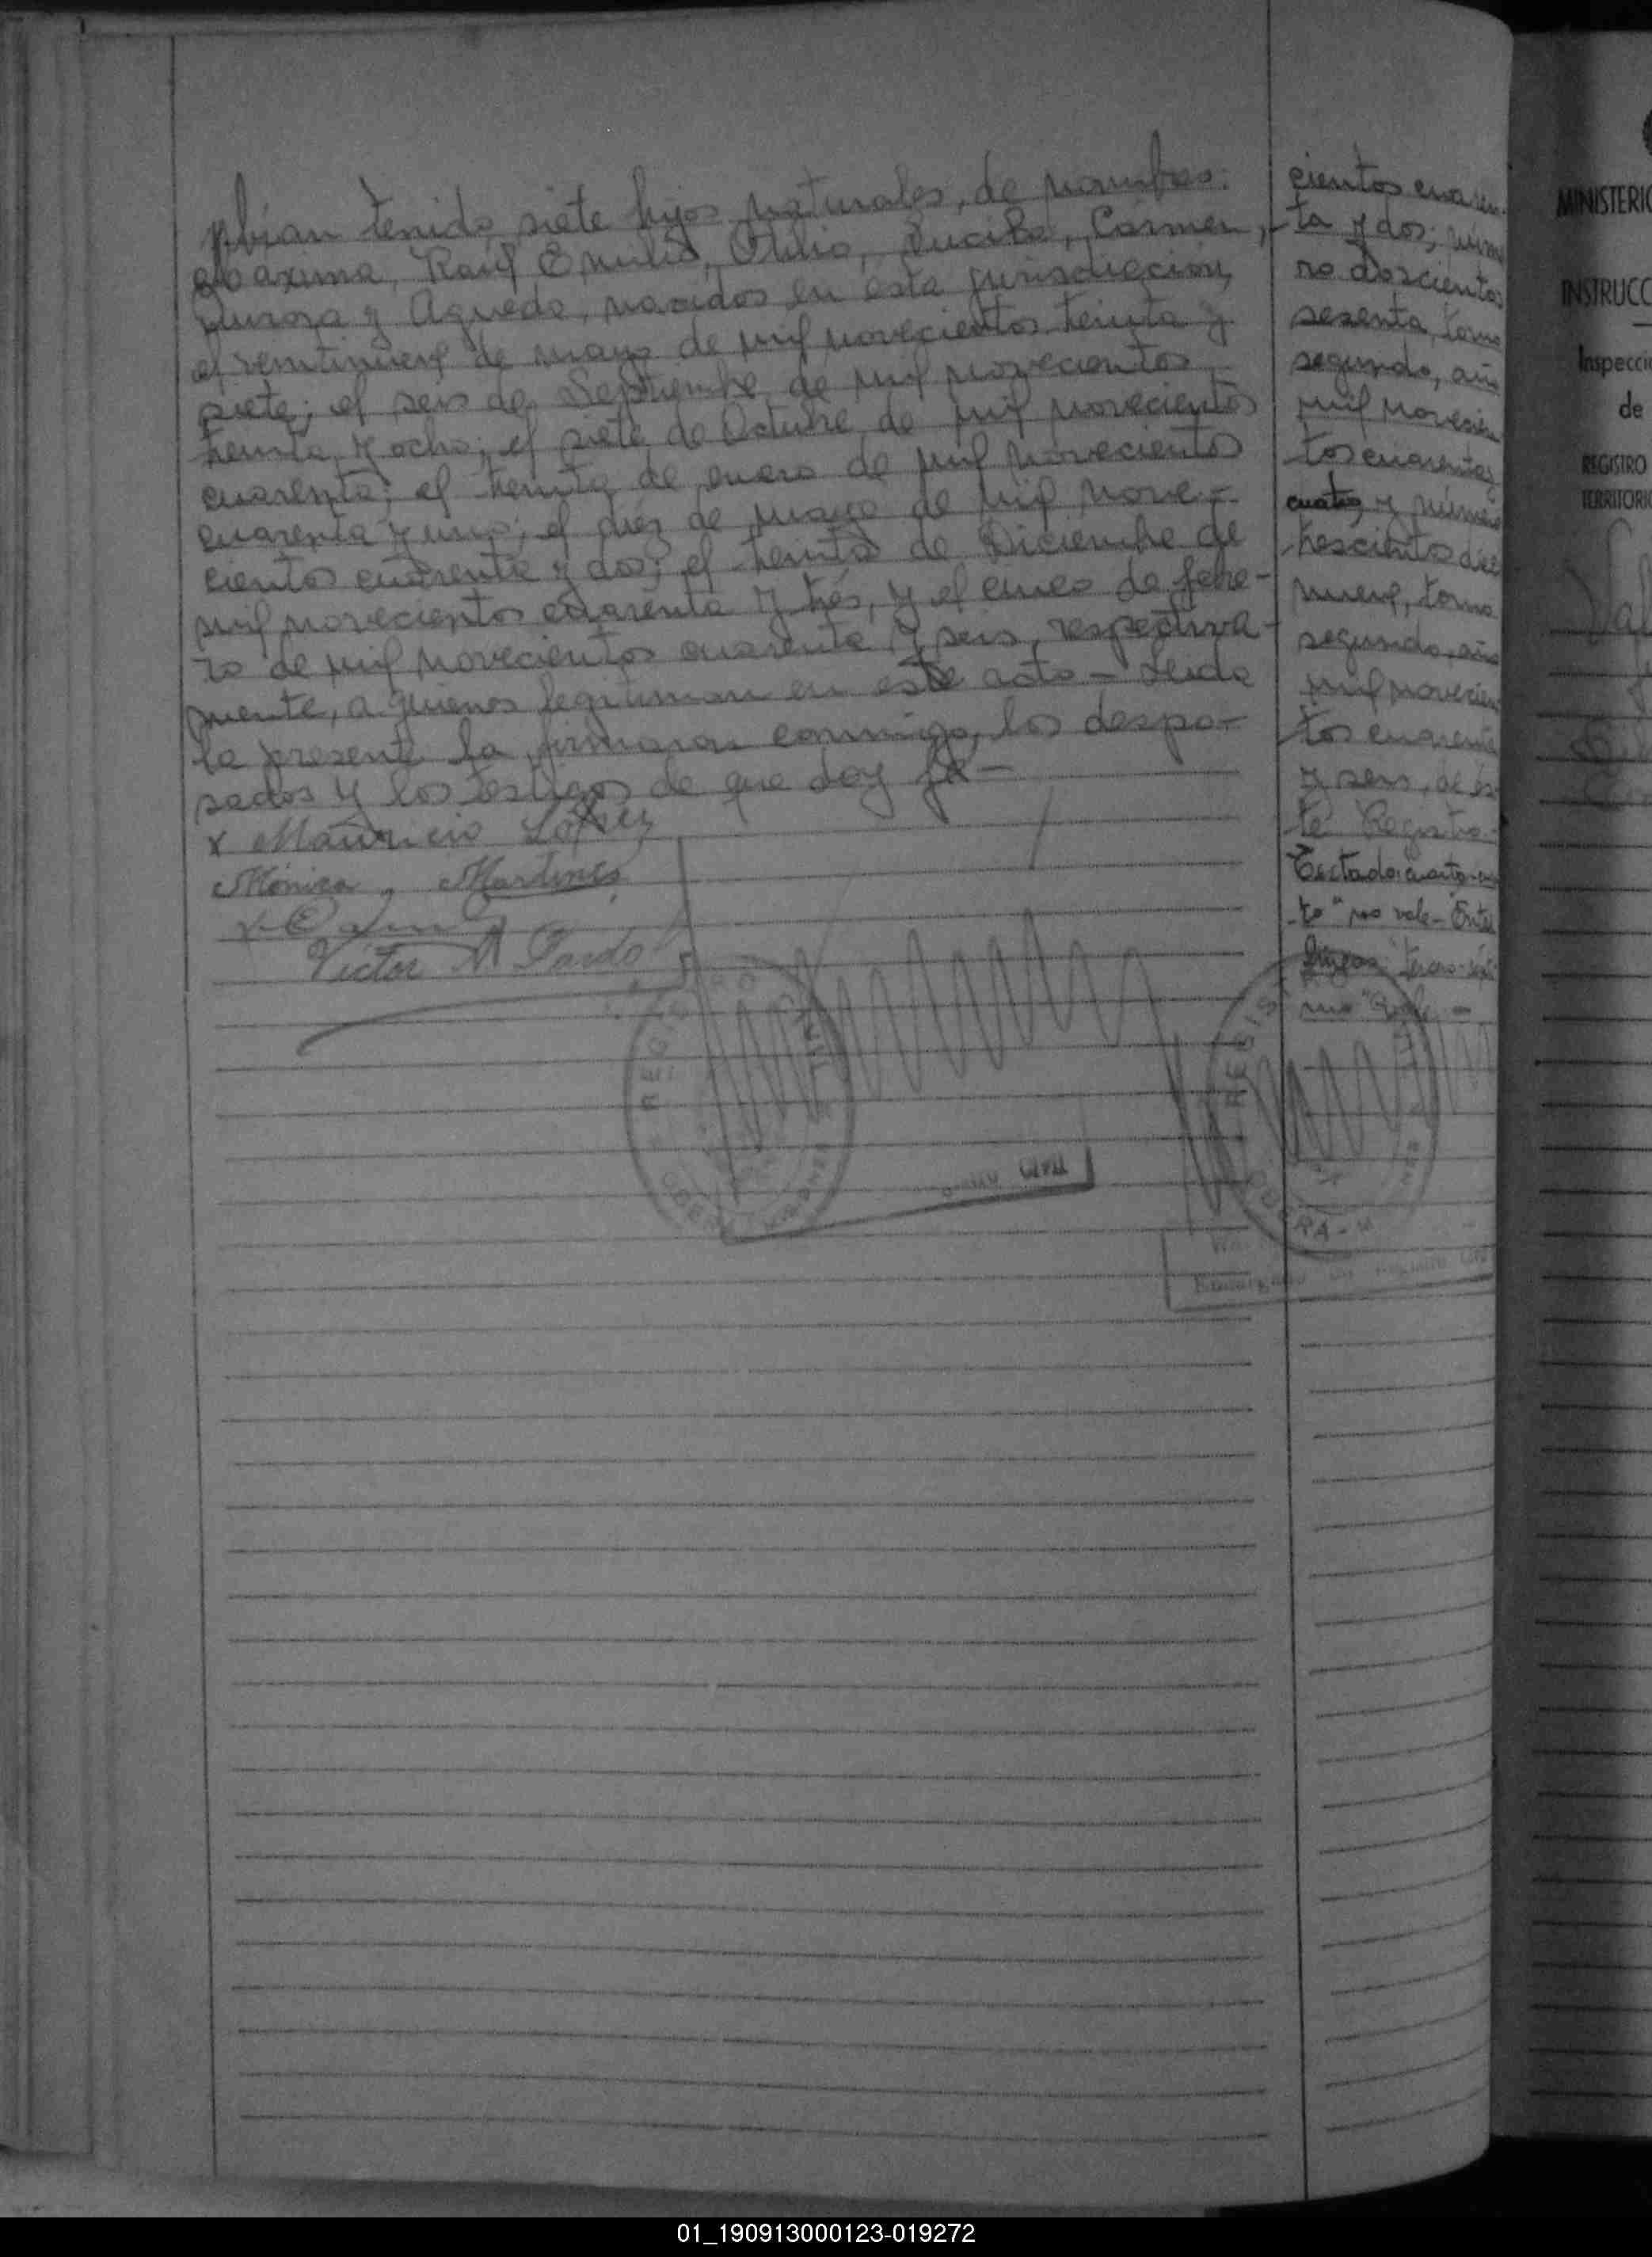 bían tenido siete hijos naturales, de nombres:
Máxima, Raúl Emilio, Otilio, Lucila, Cármen,
Aurora y Agueda, nacidos en esta jurisdicción,
el veintinueve de mayo de mil novecientos treinta y
siete; el seis de Septiembre de mil novecientos
treinta y ocho; el siete de Octubre de mil novecientos
cuarenta; el treinta de enero de mil novecientos
cuarenta y uno; el diez de mayo de mil nove-
cientos cuarenta y dos; el treinta de Diciembre de
mil novecientos cuarenta y trés, y el cinco de febre-
ro de mil novecientos cuarenta y seis, respectiva-
mente, a quienes legitiman en este acto - Leida
la presente la firmaron conmigo, los despo-
sados y los testigos de que doy fé -
x Mauricio López
Mónica Martines
Victor M Pardo
cientos cuaren-
ta y dos; núme
ro doscientos
sesenta, tomo
segundo, año
mil novecien
tos cuarenta y
cuatro y número
trescientos diez
nueve, tomo
segundo, año
mil novecien
tos cuarenta
y seis, de es
te Registro-
Testado: cuarto
to" no vale- Entre
líneas:
mo" Vale -
REGISTRO CIVIL
OBERA - MISIONES
Civil
REGIS
OBERA - M
Encargado del Registro Civil
MINISTERIO
INSTRUCC
Inspecci
de
REGISTRO
TERRITORIO
01_190913000123-019272